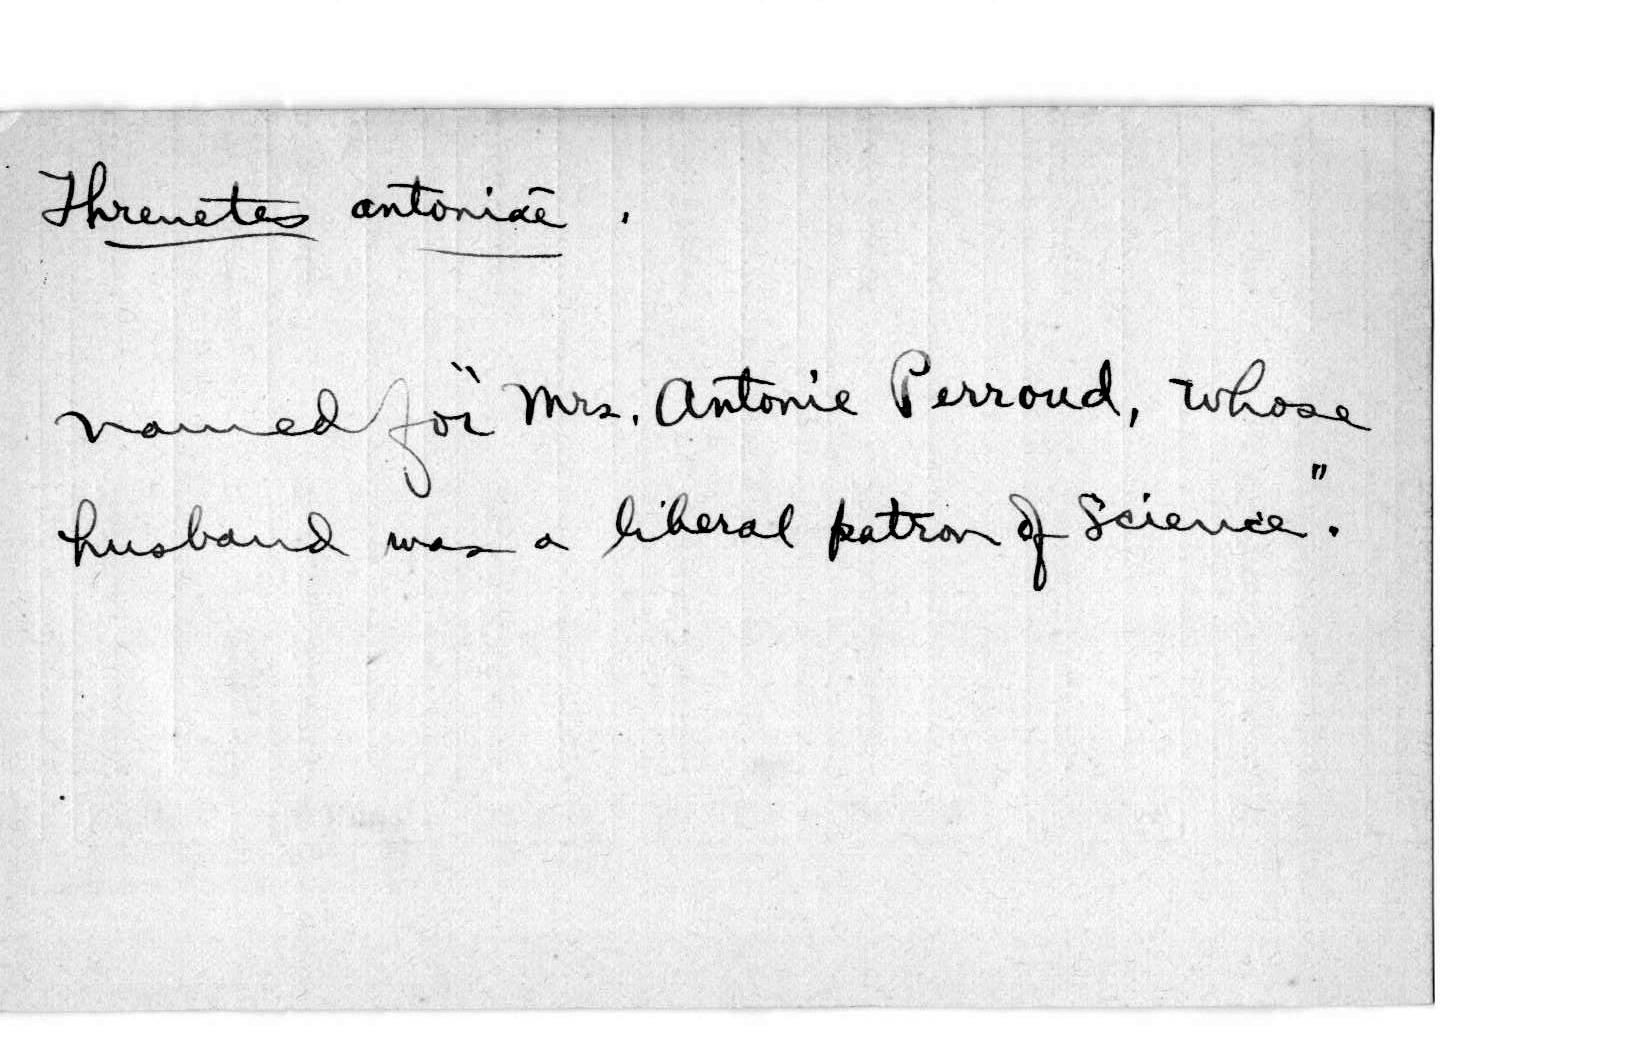 Threnetes antoniae.
named for "Mrs. Antonie Perroud, whose
husband was a liberal patron of Science".